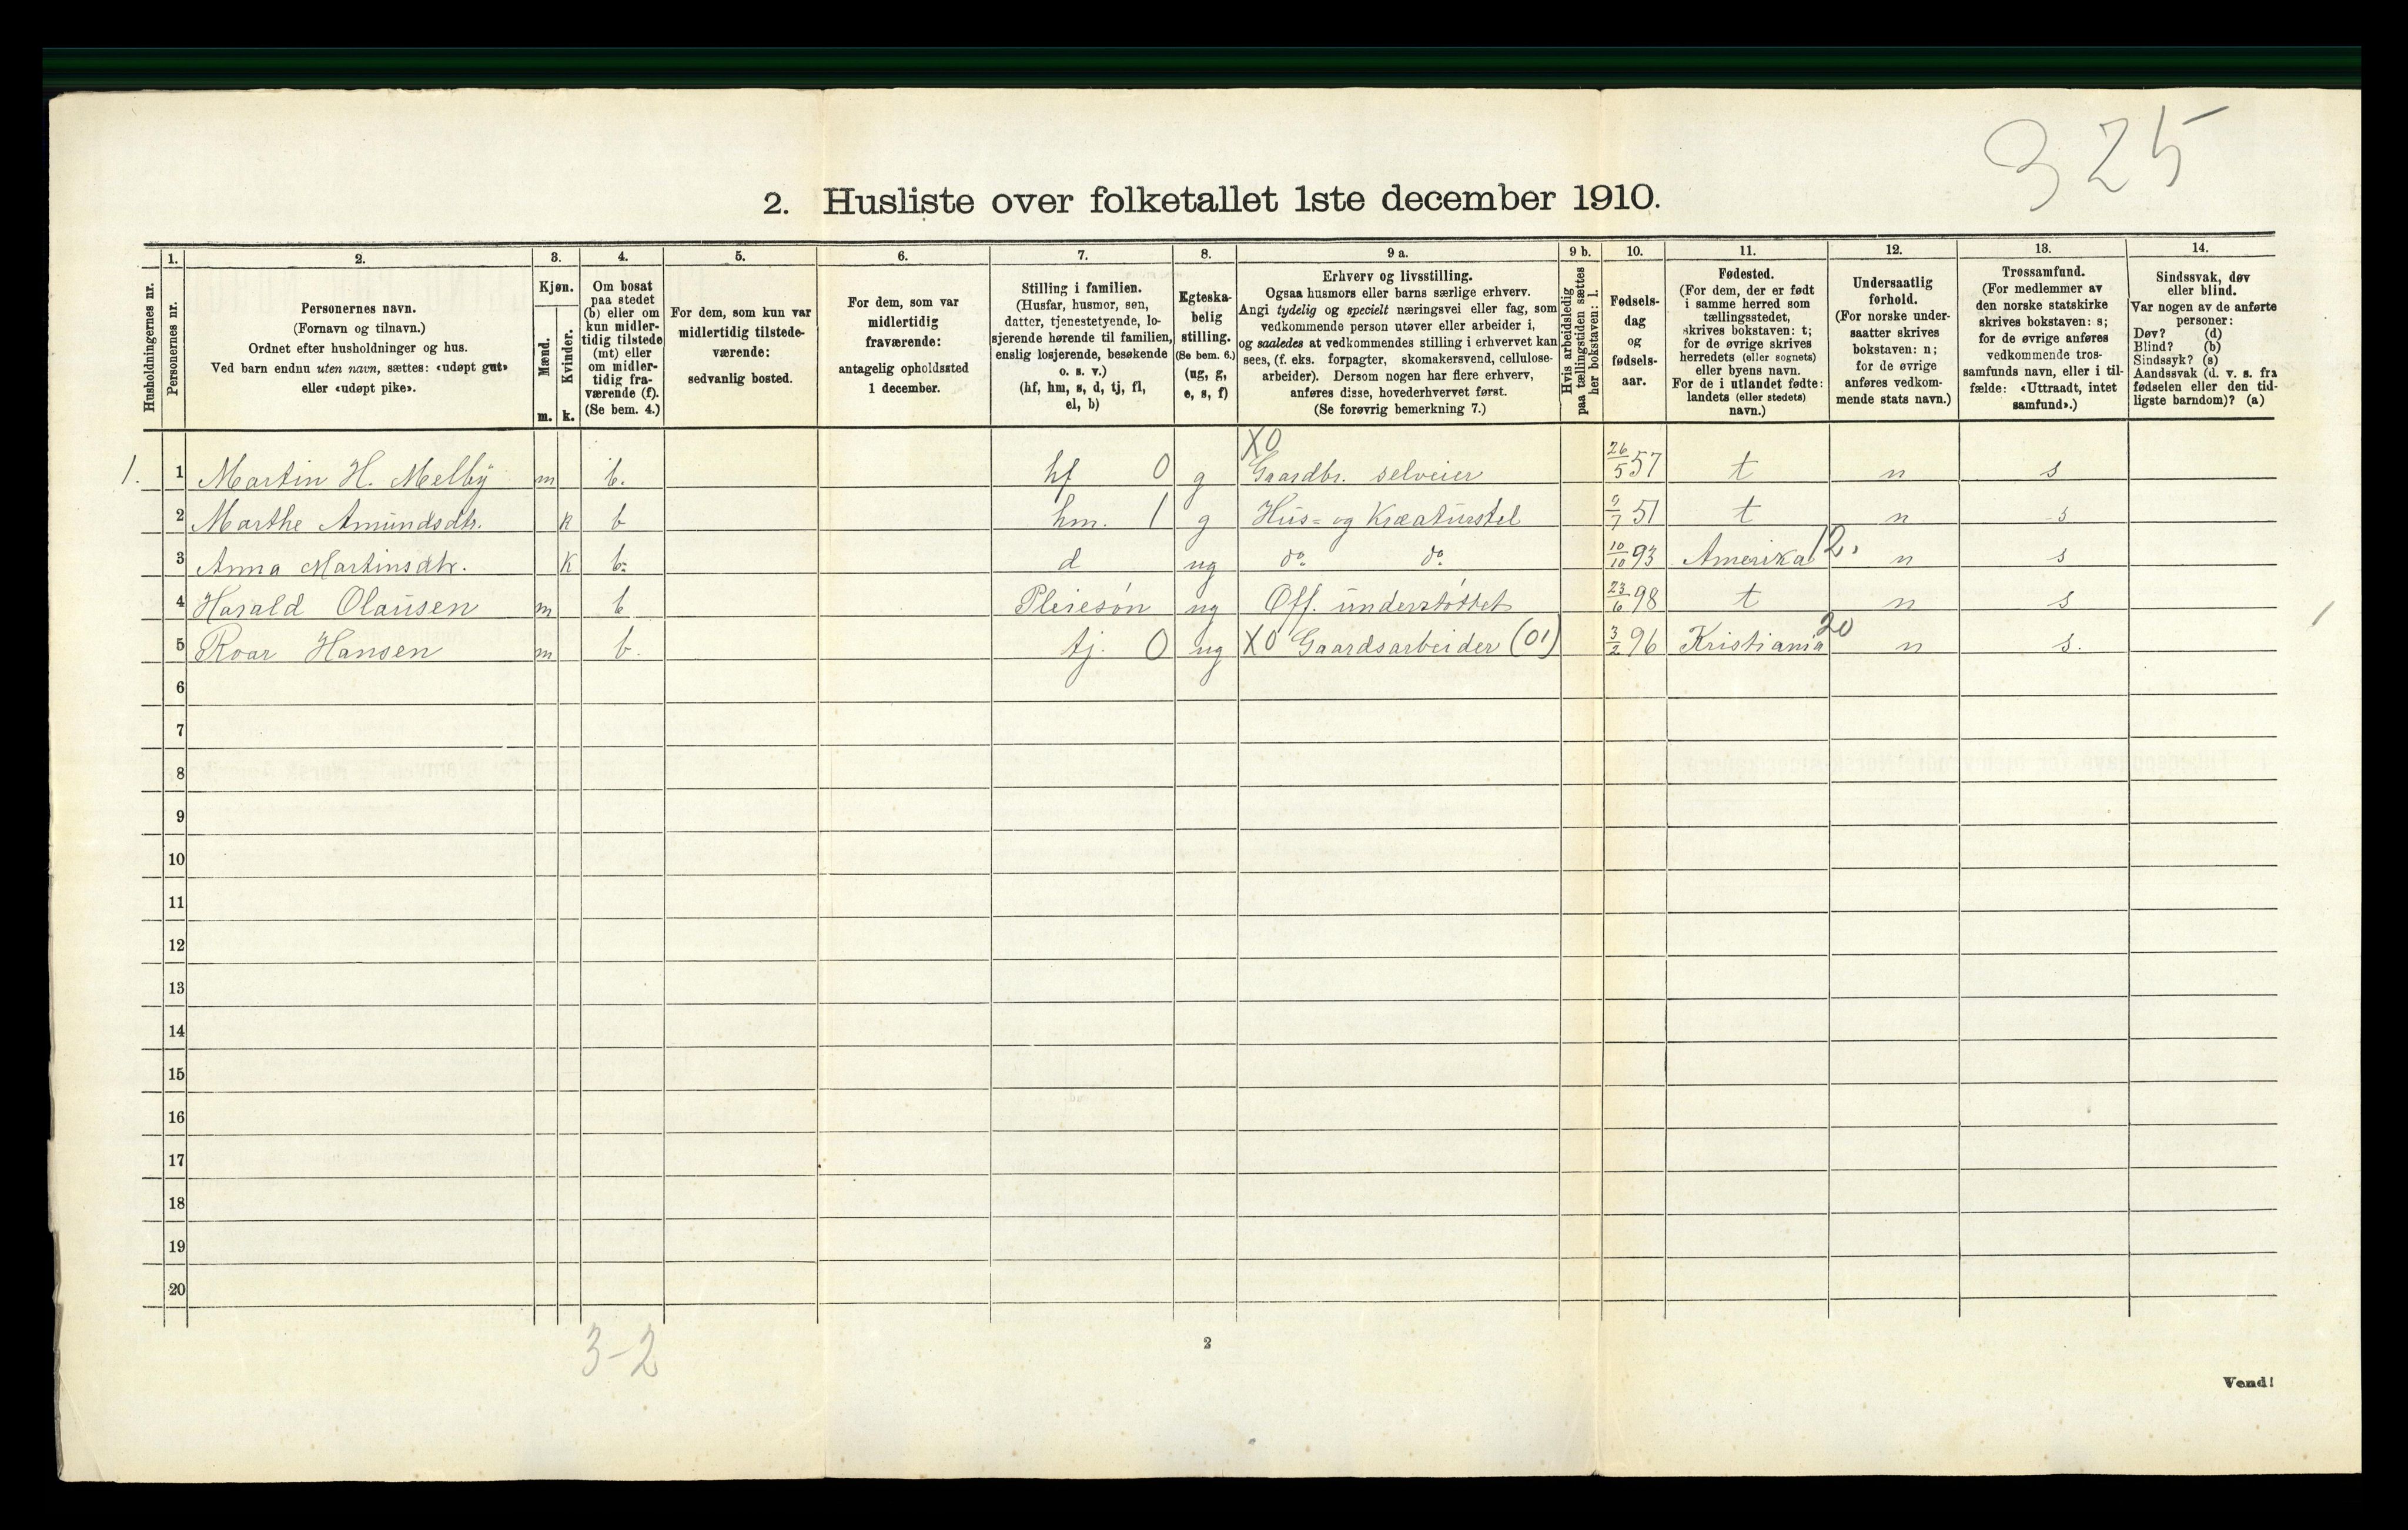 325
2. Husliste over folketallet 1ste december 1910.
Husholdningernes nr.
1.
Personernes nr.
2.
Personernes navn.
(Fornavn og tilnavn.)
Ordnet efter husholdninger og hus.
Ved barn endnu uten navn, sættes: «udøpt gut»
eller «udøpt pike».
3.
Kjøn.
Mænd.
m.
Kvinder.
k.
4.
Om bosat
paa stedet
(b) eller om
kun midler-
tidig tilstede
(mt) eller
om midler-
tidig fra-
værende (f).
(Se bem. 4.)
5.
For dem, som kun var
midlertidig tilstede-
værende:
sedvanlig bosted.
6.
For dem, som var
midlertidig
fraværende:
antagelig opholdssted
1 december.
7.
Stilling i familien.
(Husfar, husmor, søn,
datter, tjenestetyende, lo-
sjerende hørende til familien,
enslig losjerende, besøkende
o. s. v.)
(hf, hm, s, d, tj, fl,
el, b)
8.
Egteska-
belig
stilling.
(Se bem. 6.)
(ug, g,
e, s, f)
9 a.
Erhverv og livsstilling.
Ogsaa husmors eller barns særlige erhverv.
Angi tydelig og specielt næringsvei eller fag, som
vedkommende person utøver eller arbeider i,
og saaledes at vedkommendes stilling i erhvervet kan
sees, (f. eks. forpagter, skomakersvend, cellulose-
arbeider). Dersom nogen har flere erhverv,
anføres disse, hovederhvervet først.
(Se forøvrig bemerkning 7.)
9 b.
Hvis arbeidsledig
paa tællingstiden sættes
her bokstaven: l.
10.
Fødsels-
dag
og
fødsels-
aar.
11.
Fødested.
(For dem, der er født
i samme herred som
tællingsstedet,
skrives bokstaven: t;
for de øvrige skrives
herredets (eller sognets)
eller byens navn.
For de i utlandet fødte:
landets (eller stedets)
navn.)
12.
Undersaatlig
forhold.
(For norske under-
saatter skrives
bokstaven: n;
for de øvrige
anføres vedkom-
mende stats navn.)
13.
Trossamfund.
(For medlemmer av
den norske statskirke
skrives bokstaven: s;
for de øvrige anføres
vedkommende tros-
samfunds navn, eller i til-
fælde: «Uttraadt, intet
samfund».)
14.
Sindssvak, døv
eller blind.
Var nogen av de anførte
personer:
Døv? (d)
Blind? (b)
Sindssyk? (s)
Aandssvak (d. v. s. fra
fødselen eller den tid-
ligste barndom)? (a)
X0
1. 1 Martin H. Melby m b. hf 0 g Gaardbr. selveier 26/5 57 t n s
2 Marthe Amundsdtr. k b hm. 1 g Hus- og Kreaturstel 9/7 51 t n s
3 Anna Martinsdtr. k b. d ug do. do. 10/10 93 Amerika 12. n s
4 Harald Olausen m b Pleiesøn ug Off. understöttet 23/6 98 t n s
5 Roar Hansen m b. tj. 0 ug X0 Gaardsarbeider (01) 3/2 96 Kristiania 20 n s.
6
7
8
9
10
11
12
13
14
15
16
17
18
19
20
3-2
2
Vend!